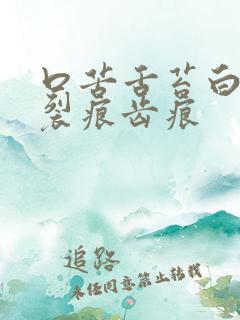 口苦舌苔白
裂痕齿痕
追路
未经同意禁止转载